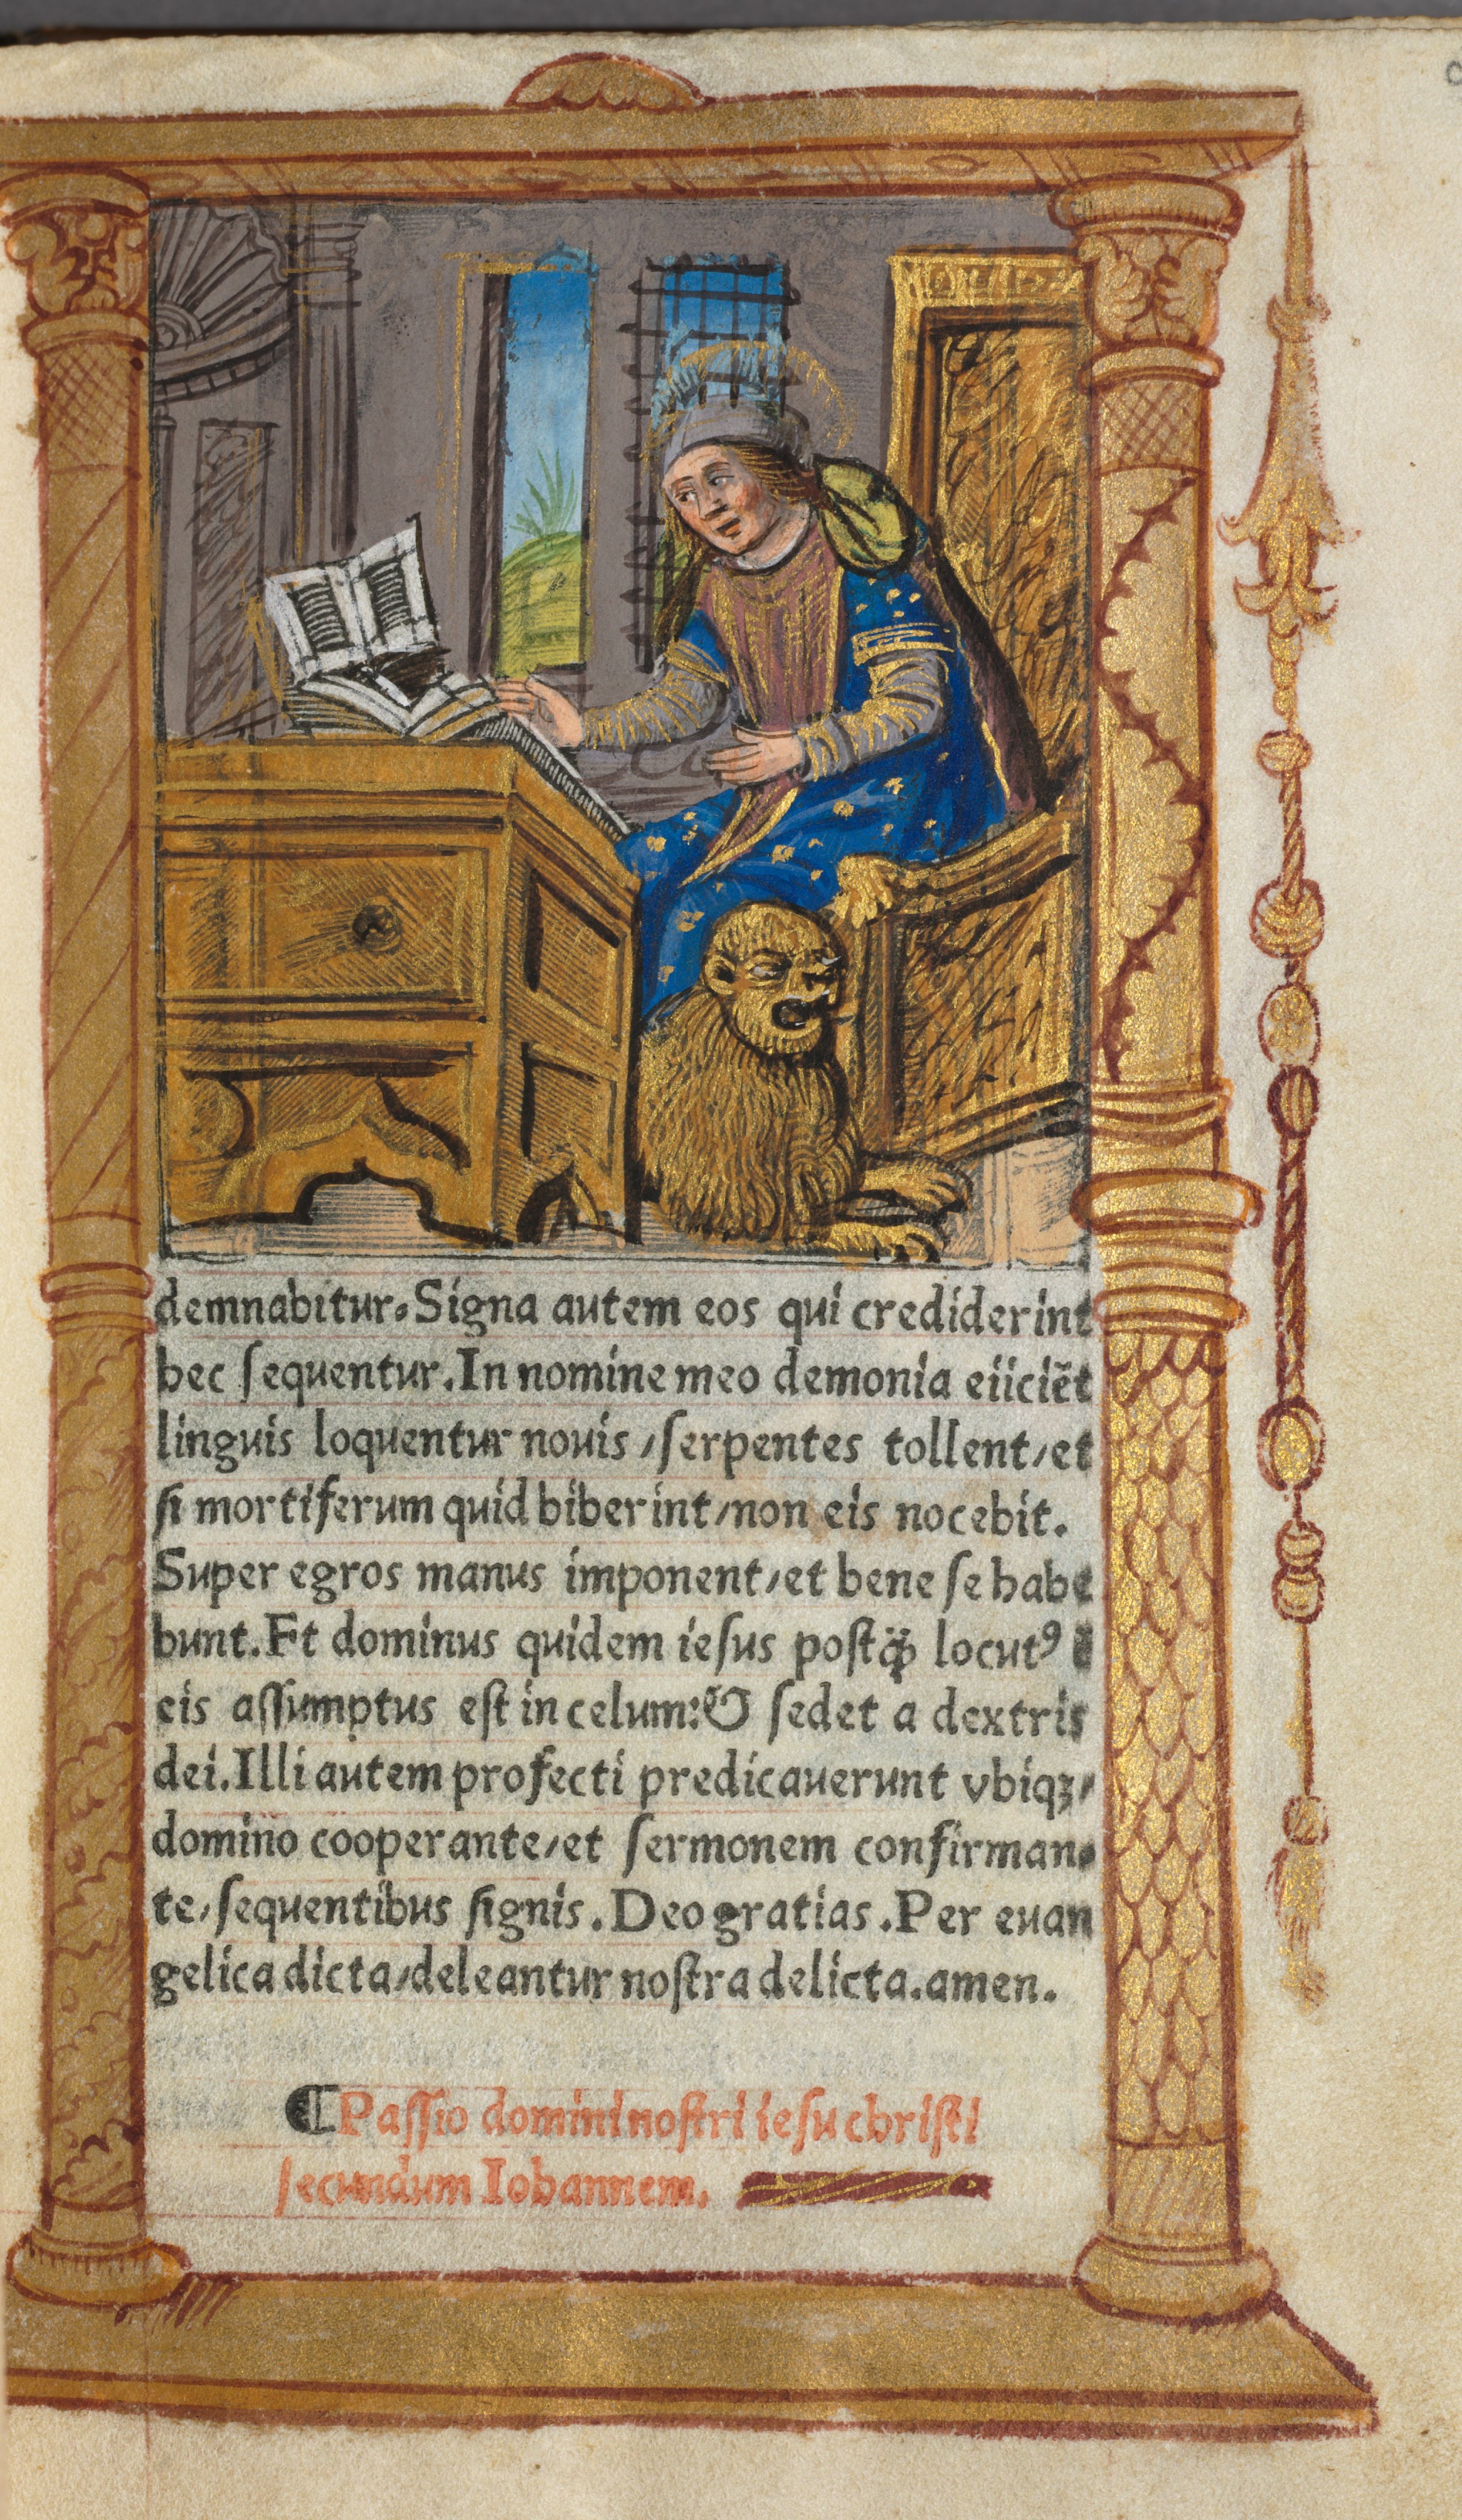 demnabitur. Signa autem eos qui crediderint
hec ſequentur. In nomine meo demonia eiiciẽt
linguis loquentur nouis / ſerpentes tollent / et
ſi mortiferum quid biberint / non eis nocebit.
Super egros manus imponent / et bene ſe habe
bunt. Et dominus quidem ieſus poſtq̃ꝫ locutꝰ ē
eis aſſumptus eſt in celum: & ſedet a dextris
dei. Illi autem profecti predicauerunt vbiqꝫ /
domino cooperante / et ſermonem confirman-
te / ſequentibus ſignis. Deo gratias. Per euan
gelica dicta / deleantur noſtra delicta. amen.
¶ Paſſio domini noſtri ieſu chriſti
ſecundum Iohannem.